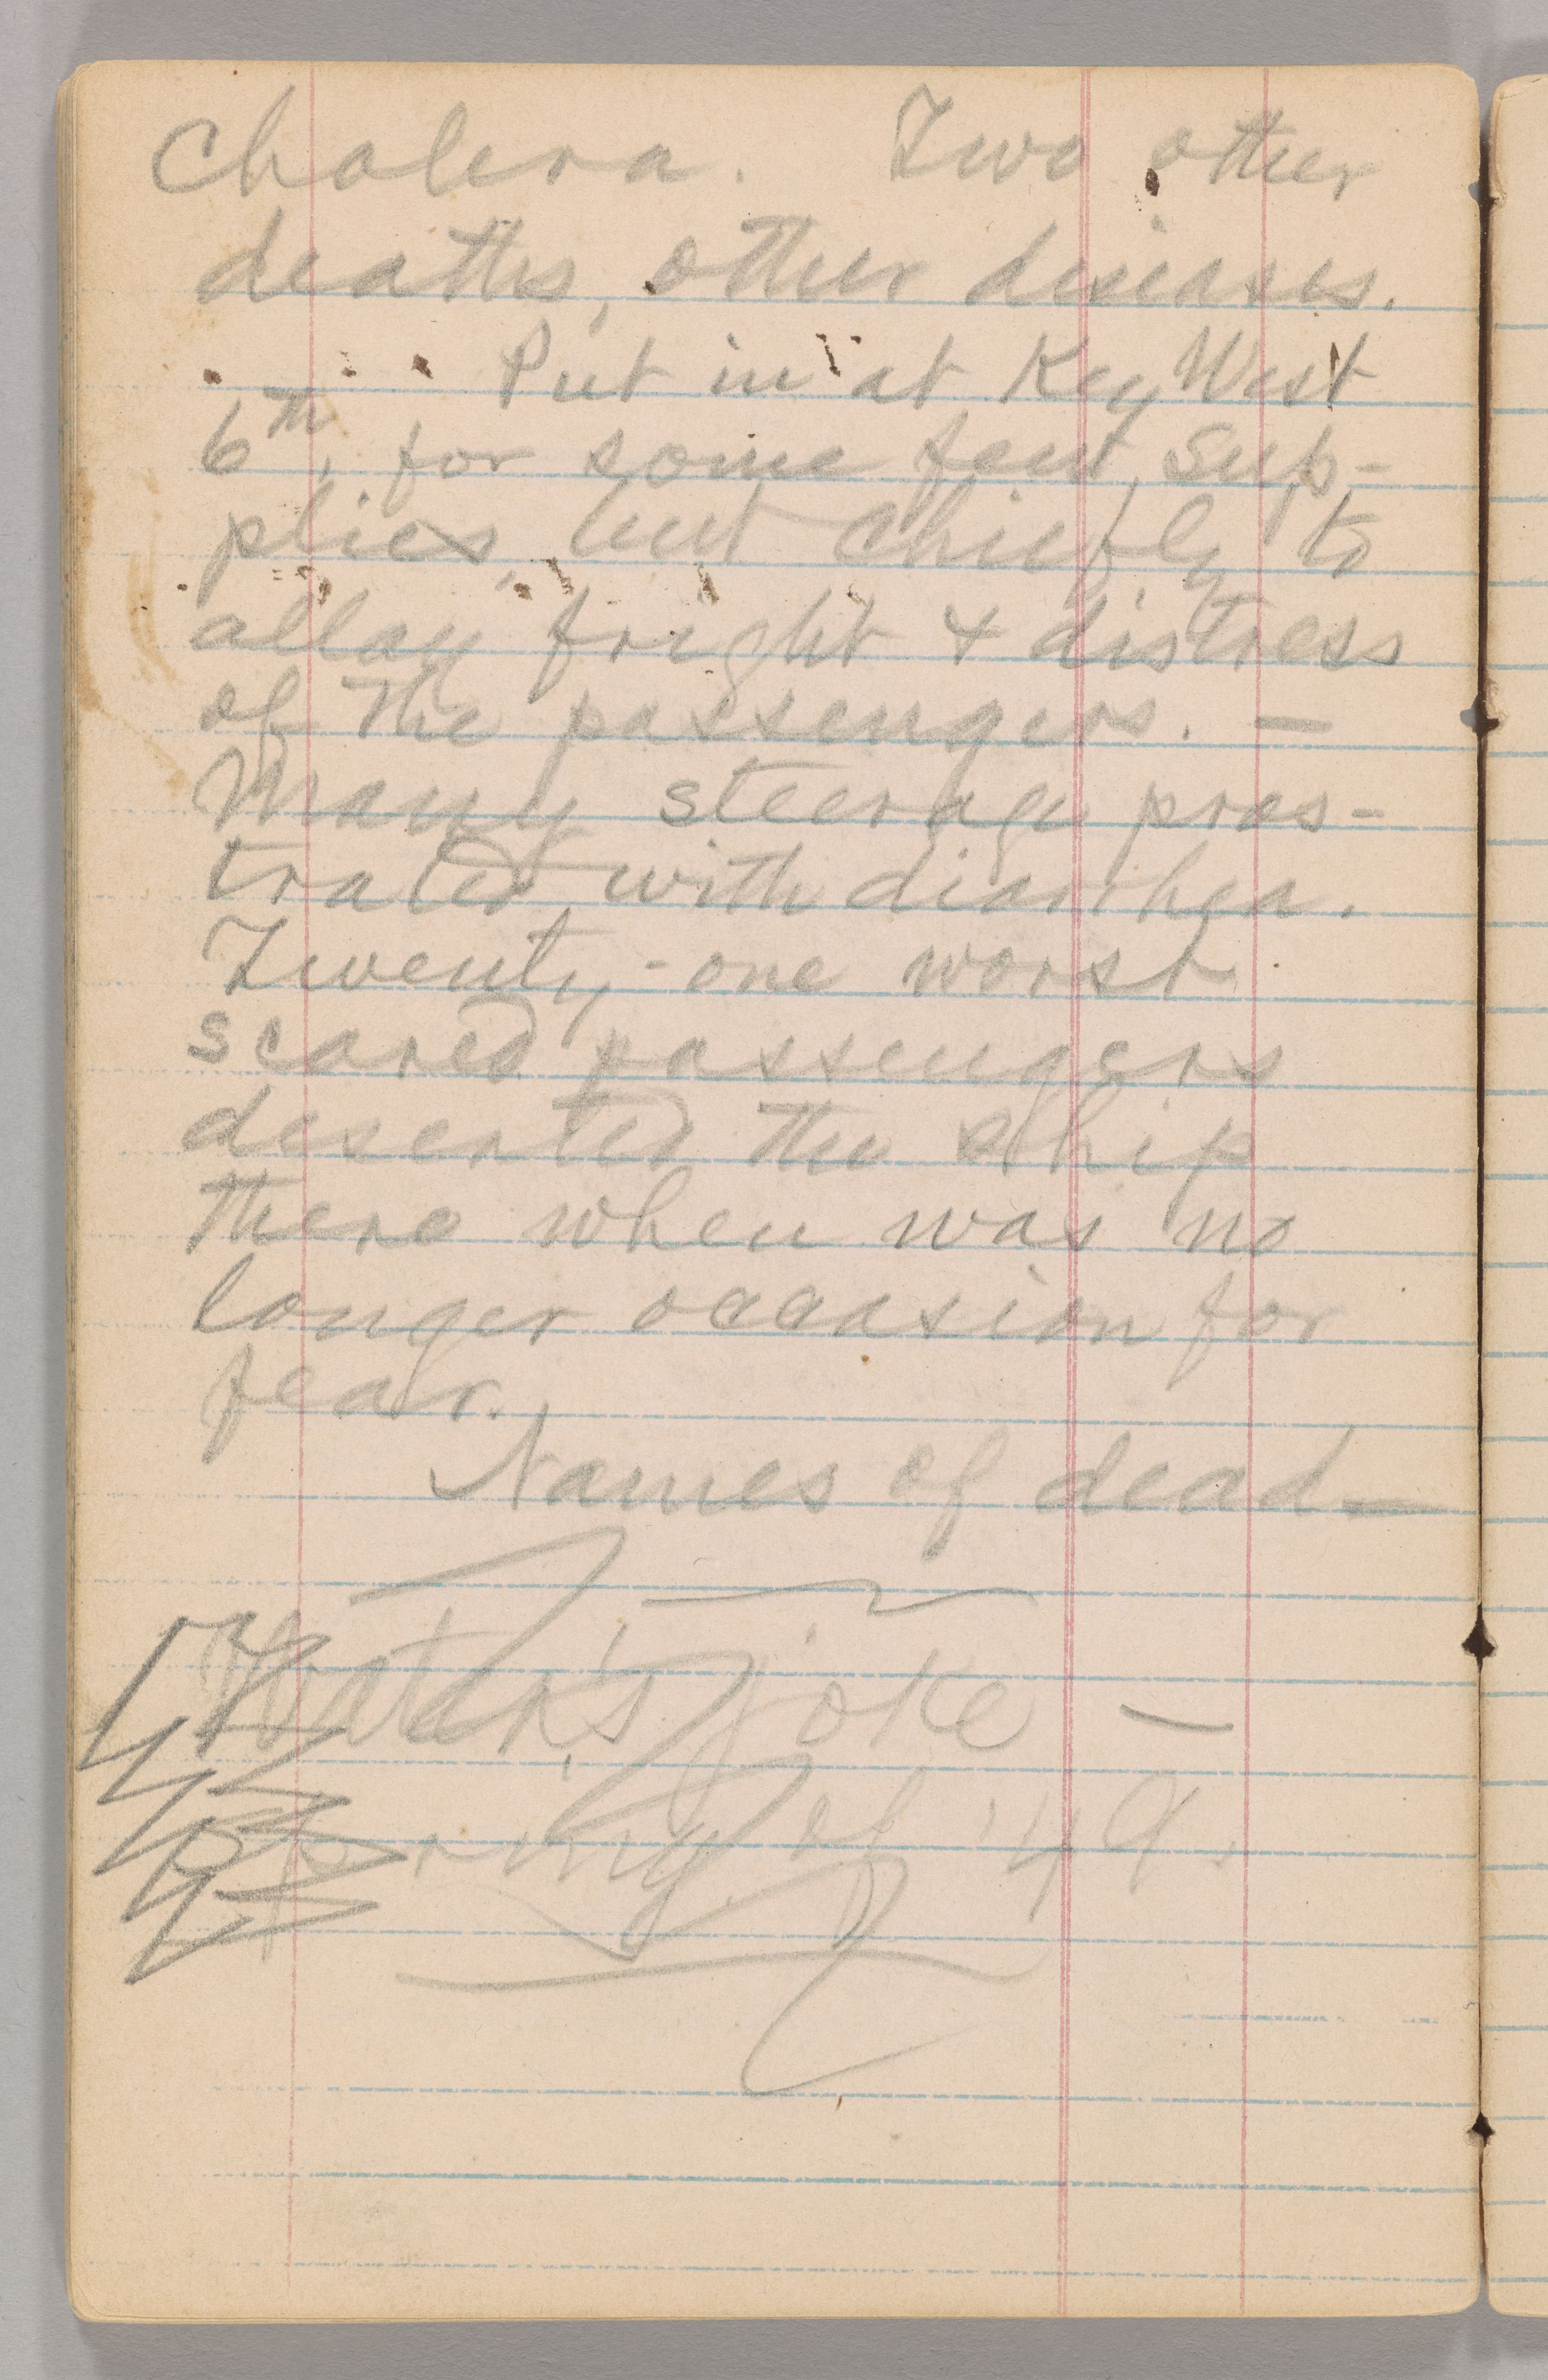 cholera. Two other
deaths, other diseases.
Put in at Key West
6th, for some few sup-
plies, but chiefly to
allay fright & distress
of the passengers. —
Many steerage pros-
trated with diarrhea.
Twenty-one worst
scared passengers
deserted the ship
there when was no
longer occasion for
fear.
Names of dead—
Water's joke —
Spring of '49.